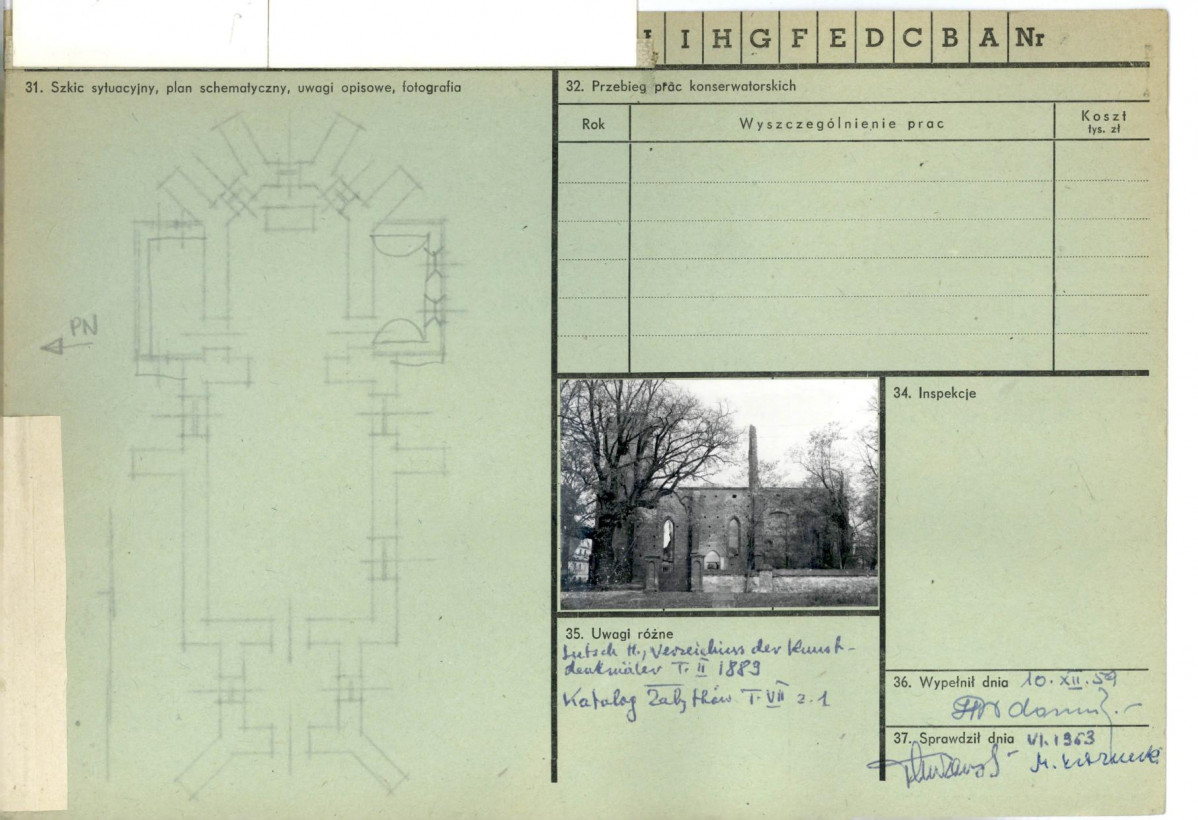 I H G F E D C B A Nr
31. Szkic sytuacyjny, plan schematyczny, uwagi opisowe, fotografia
PN
32. Przebieg prac konserwatorskich
Rok
Wyszczególnienie prac
Koszt
tys. zł
34. Inspekcje
35. Uwagi różne
Lutsch H., Verzeichnis der Kunst-
denkmäler T. II 1889
Katalog Zabytków T. VII z. 1
36. Wypełnił dnia 10.XII.59
37. Sprawdził dnia VI.1963
M.